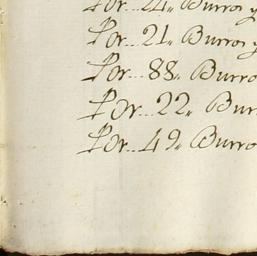 Por... 24,, Burros y
Por... 21,, Burros y
Por... 88,, Burro
Por... 22,, Bur
Por... 49,, Burro